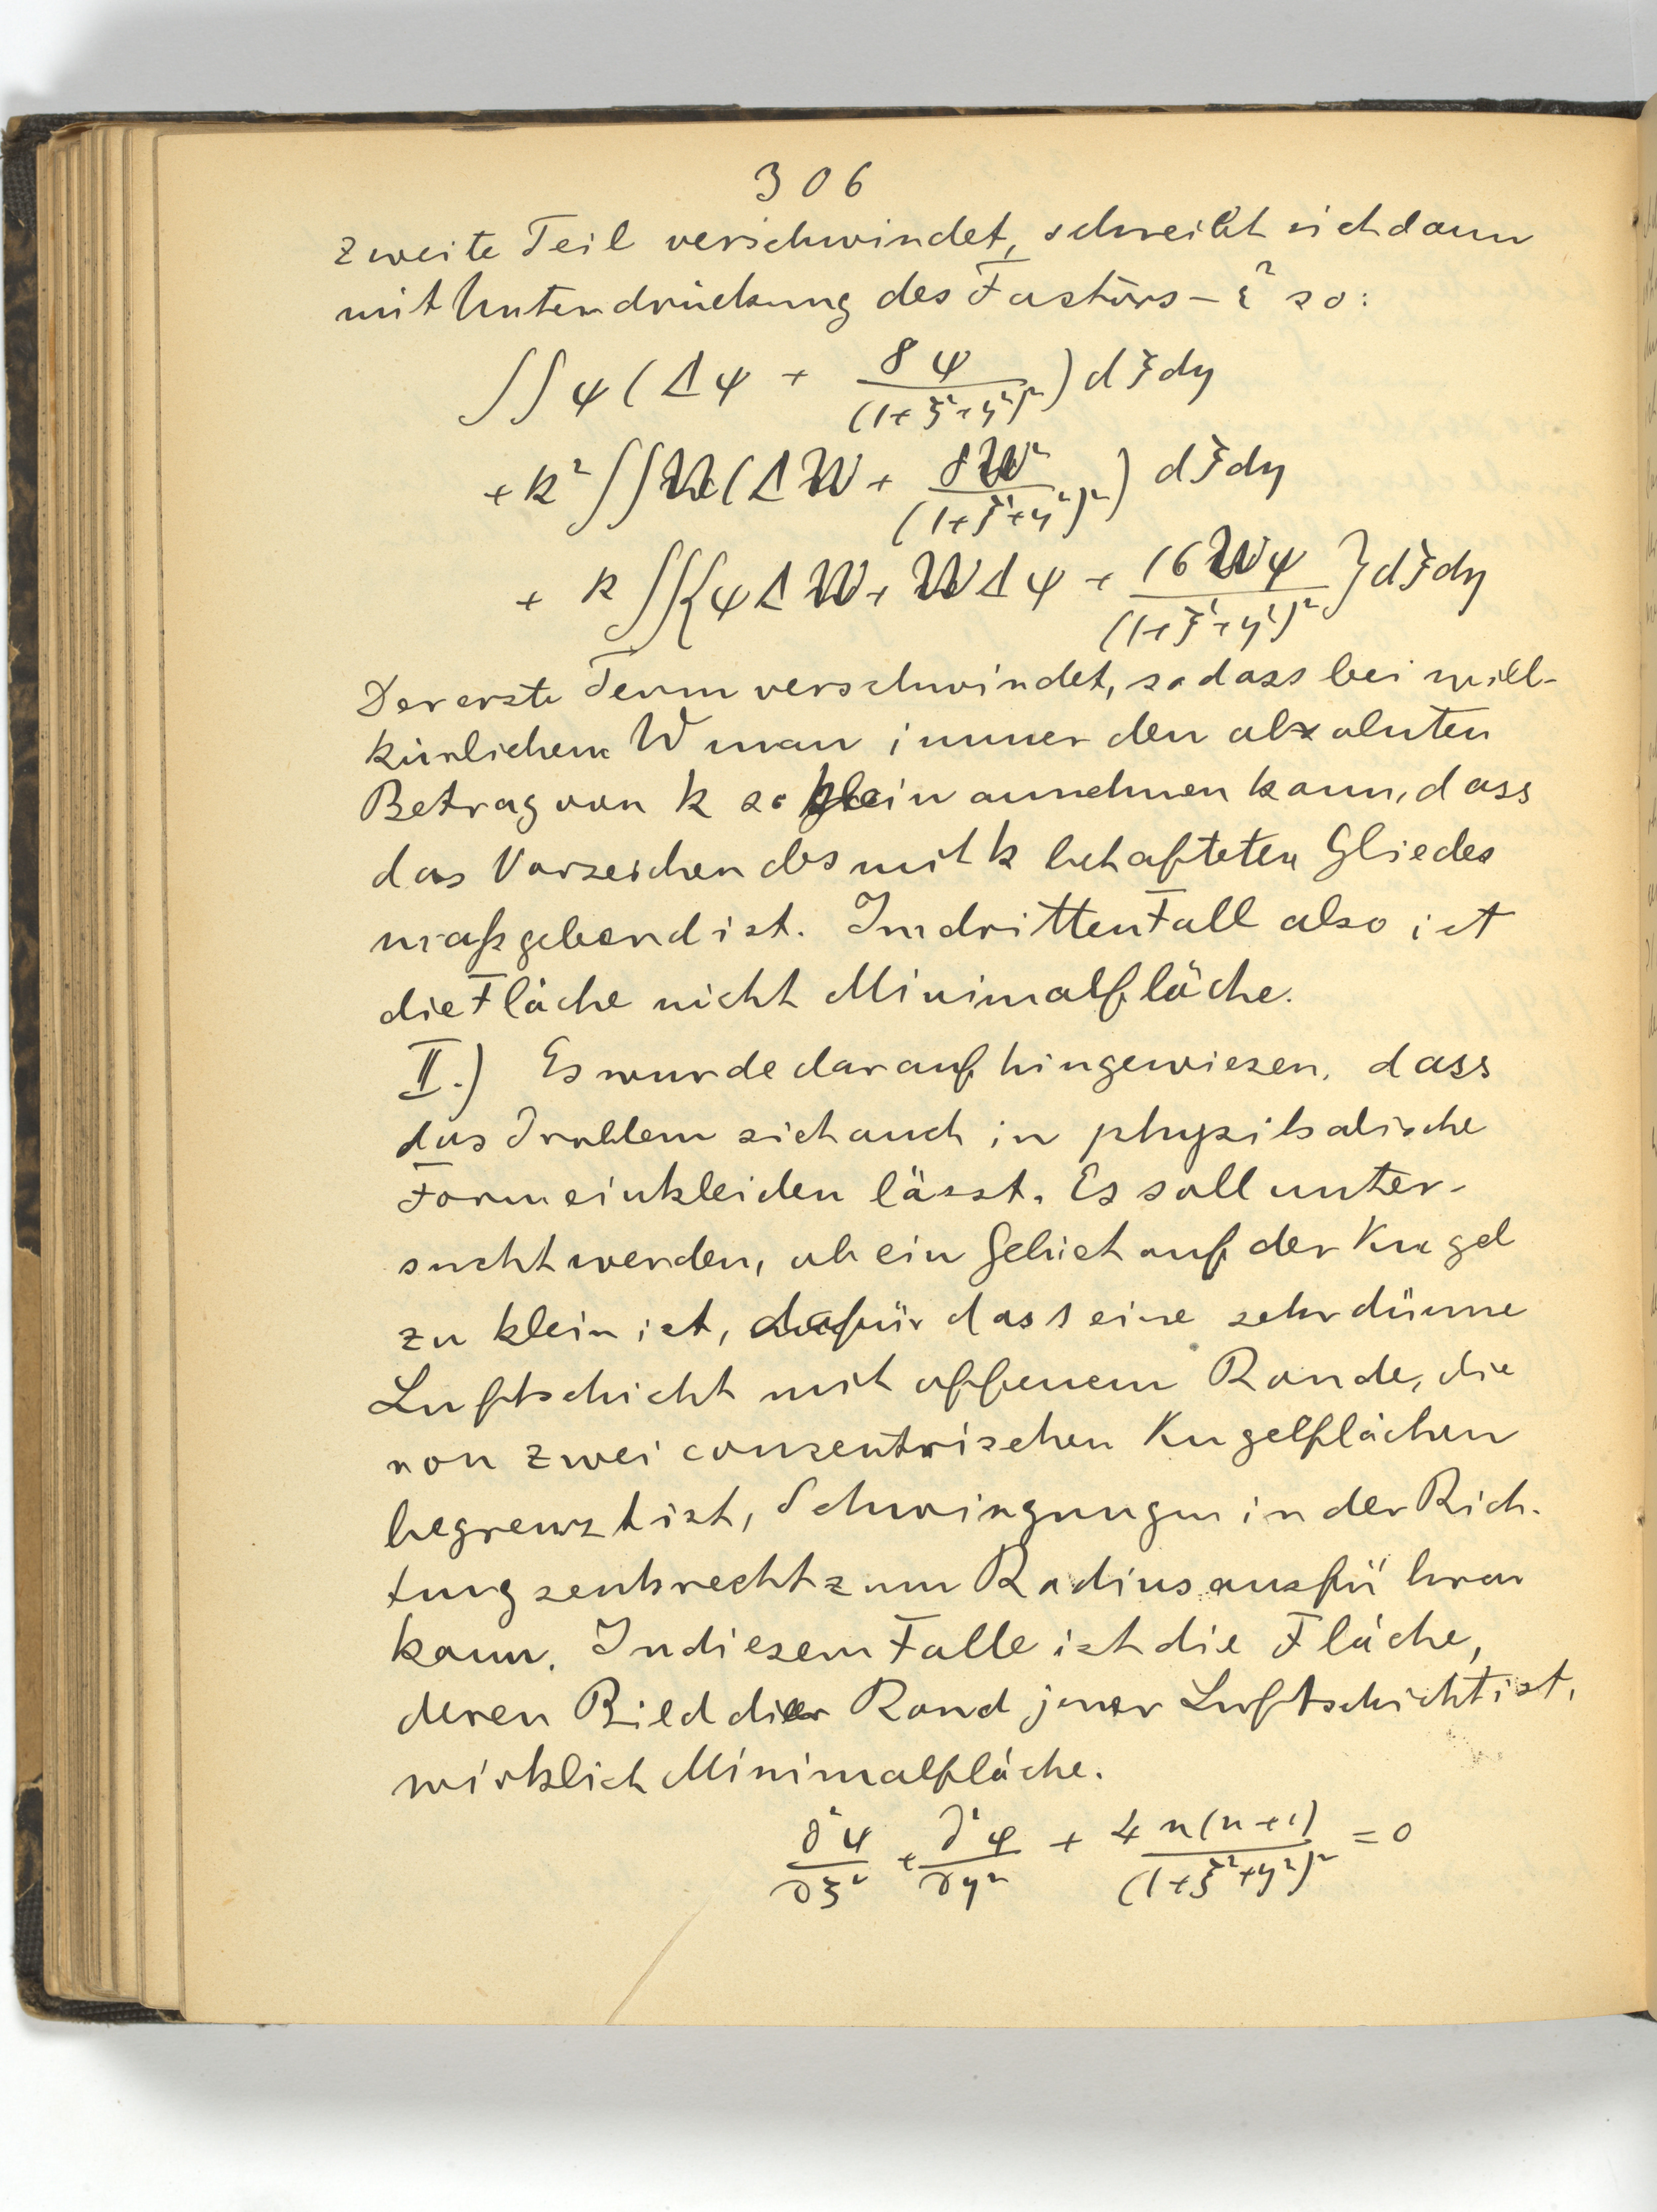 306
zweite Teil verschwindet, schreibt sich dann
mit Unterdrückung des Factors - ε² so:
∫∫ψ(Δψ + 8ψ/(1+ξ²+η²)²) dξdη
+ k²∫∫W(ΔW + 8W²/(1+ξ²+η²)²) dξdη
+ k∫∫{ψΔW + WΔψ + 16Wψ/(1+ξ²+η²)²}dξdη
Der erste Term verschwindet, sodass bei will-
kürlichem W man immer den absoluten
Betrag von k so klein annehmen kann, dass
das Vorzeichen des mit k behafteten Gliedes
maßgebend ist. Im dritten Fall also ist
die Fläche nicht Minimalfläche.
II.) Es wurde darauf hingewiesen, dass
das Problem sich auch in physikalische
Form einkleiden lässt. Es soll unter-
sucht werden, ob ein Gebiet auf der Kugel
zu klein ist, dafür dass eine sehr dünne
Luftschicht mit offenem Rande, die
von zwei conzentrischen Kugelflächen
begrenzt ist, Schwingungen in der Rich-
tung senkrecht zum Radius ausführen
kann. In diesem Falle ist die Fläche,
deren Bild der Rand jener Luftschicht ist,
wirklich Minimalfläche.
∂²ψ/∂ξ² + ∂²ψ/∂η² + 4n(n+1)/(1+ξ²+η²)² = 0